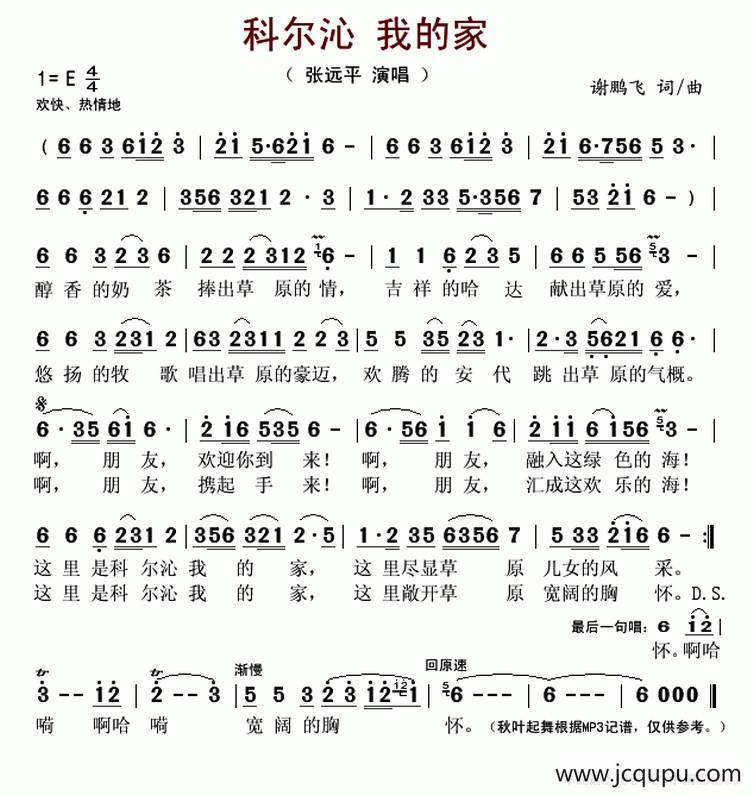 科尔沁 我的家
（ 张远平 演唱 ）
1= E 4/4
欢快、热情地
谢鹏飞 词/曲
( 6 6 3 6i2 3 | 2i 5·62i 6 - | 6 6 3 6i2 3 | 2i 6·756 5 3· |
6 6 6 21 2 | 356 321 2 · 3 | 1· 2 33 5·356 7 | 53 2i 6 - ) |
6 6 6 2 3 6 | 2 2 2 312 1 6 - | 1 1 6 2 3 5 | 6 6 5 56 5 3 - |
醇香的奶 茶 捧出草 原的情， 吉祥的哈 达 献出草原的 爱，
6 6 3 231 2 | 63 2311 2 2 - | 5 5 35 23 1· | 2·3 5621 6 6· |
悠扬的牧 歌 唱出草 原的豪迈， 欢腾的 安 代 跳 出草原的气概。
6 · 35 6i 6 · | 2 i6 535 6 - | 6 · 56 5 6 · | 2 ii 6 i56 5 3 - |
啊， 朋友， 欢迎你到 来！ 啊， 朋友， 融入这绿 色的海！
啊， 朋友， 携起 手 来！ 啊， 朋友， 汇成这欢 乐的海！
6 6 6 231 2 | 356 321 2 2·5 | 1·2 35 6356 7 | 5 33 2i6 6 - :||
这里是科 尔沁我 的 家， 这里尽显草 原 儿女的风 采。
这里是科 尔沁我 的 家， 这里敞开草 原 宽阔的胸 怀。D.S.
最后一句唱： 6 i2 |
怀。啊哈
3 - - i2 | 2 - - 3 | 渐慢 5 5 3 2 3 i2 i2 i | 回原速 5 6 - - - | 6 - - - | 6 000 ||
嗬 啊哈 嗬 宽阔的胸 怀。 (秋叶起舞根据MP3记谱，仅供参考。)
www.jcqupu.com